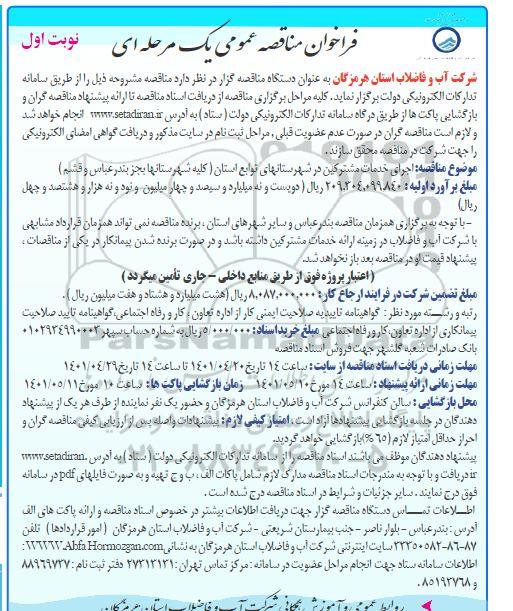 فراخوان مناقصه عمومی یک مرحله ای
نوبت اول
شرکت آب و فاضلاب استان هرمزگان به عنوان دستگاه مناقصه گزار در نظر دارد مناقصه مشروحه ذیل را از طریق سامانه
تدارکات الکترونیکی دولت برگزار نماید. کلیه مراحل برگزاری مناقصه از دریافت اسناد مناقصه تا ارائه پیشنهاد مناقصه گران و
بازگشایی پاکت ها از طریق درگاه سامانه تدارکات الکترونیکی دولت ( ستاد ) به آدرس www.setadiran.ir انجام خواهد شد
و لازم است مناقصه گران در صورت عدم عضویت قبلی , مراحل ثبت نام در سایت مذکور و دریافت گواهی امضای الکترونیکی
را جهت شرکت در مناقصه محقق سازند.
موضوع مناقصه: اجرای خدمات مشترکین در شهرستانهای توابع استان ( کلیه شهرستانها بجز بندرعباس و قشم )
مبلغ برآورد اولیه : ۲۰۹,۳۰۴,۰۹۹,۸۴۰ ریال ( دویست و نه میلیارد و سیصد و چهار میلیون و نود و نه هزار و هشتصد و چهل
ریال)
- با توجه به برگزاری همزمان مناقصه بندرعباس و سایر شهرهای استان , برنده مناقصه نمی تواند همزمان قرارداد مشابهی
با شرکت آب و فاضلاب در زمینه ارائه خدمات مشترکین داشته باشد و در صورت برنده شدن پیمانکار در یکی از مناقصات ,
پیشنهاد قیمت او در مناقصه بعد باز نخواهد شد.
( اعتبار پروژه فوق از طریق منابع داخلی - جاری تأمین میگردد )
مبلغ تضمین شرکت در فرایند ارجاع کار : ۸,۰۸۷,۰۰۰,۰۰۰ ریال (هشت میلیارد و هشتاد و هفت میلیون ریال ).
رتبه و رسته مورد نظر : گواهینامه تاییدیه صلاحیت ایمنی کار از اداره تعاون , کار و رفاه اجتماعی،گواهینامه تایید صلاحیت
پیمانکاری از اداره تعاون،کار و رفاه اجتماعی مبلغ خرید اسناد: ۵/۰۰۰/۰۰۰ ریال به شماره حساب سپهر ۰۱۰۲۹۲۴۹۹۰۰۰۳
بانک صادرات شعبه گلشهر جهت فروش اسناد مناقصه
مهلت زمانی دریافت اسناد مناقصه از سایت: ساعت ۱۴ تاریخ ۱۴۰۱/۰۴/۲۰ تا ساعت ۱۴ تاریخ ۱۴۰۱/۰۴/۲۹
مهلت زمانی ارائه پیشنهاد : ساعت ۱۴ مورخ ۱۴۰۱/۰۵/۱۰ زمان بازگشایی پاکت ها: ساعت ۱۰ مورخ ۱۴۰۱/۰۵/۱۱
محل بازگشایی : سالن کنفرانس شرکت آب و فاضلاب استان هرمزگان و حضور یک نفر نماینده از طرف هر یک از پیشنهاد
دهندگان در جلسه بازگشایی پیشنهادها آزاد است . امتیاز کیفی لازم : پیشنهادات واصله پس از ارزیابی کیفی مناقصه گران و
احراز حداقل امتیاز لازم (۶۵ %) بازگشایی خواهد گردید.
پیشنهاد دهندگان موظف می باشند اسناد مناقصه را از سامانه تدارکات الکترونیکی دولت ( ستاد ) به آدرس www.setadiran.
ir دریافت و با توجه به مندرجات اسناد مناقصه مدارک لازم شامل پاکات الف , ب و ج تهیه و به صورت فایلهای pdf در سامانه
فوق درج نمایند . سایر جزئیات و شرایط در اسناد مناقصه درج شده است .
اطلاعات تماس دستگاه مناقصه گزار جهت دریافت اطلاعات بیشتر در خصوص اسناد مناقصه و ارائه پاکت های الف
آدرس : بندرعباس - بلوار ناصر - جنب بیمارستان شریعتی - شرکت آب و فاضلاب استان هرمزگان ( امور قراردادها ) تلفن
۸۷-۸۶-۳۳۳۵۰۵۸۲ سایت اینترنتی شرکت آب و فاضلاب استان هرمزگان به نشانی Abfa Hormozgan.com
اطلاعات سامانه ستاد جهت انجام مراحل عضویت در سامانه : مرکز تماس تهران : ۲۷۳۱۳۱۳۱ دفتر ثبت نام : ۸۸۹۶۹۷۳۷
و ۸۵۱۹۳۷۶۸
روابط عمومی و آموزش همگانی شرکت آب و فاضلاب استان هرمزگان